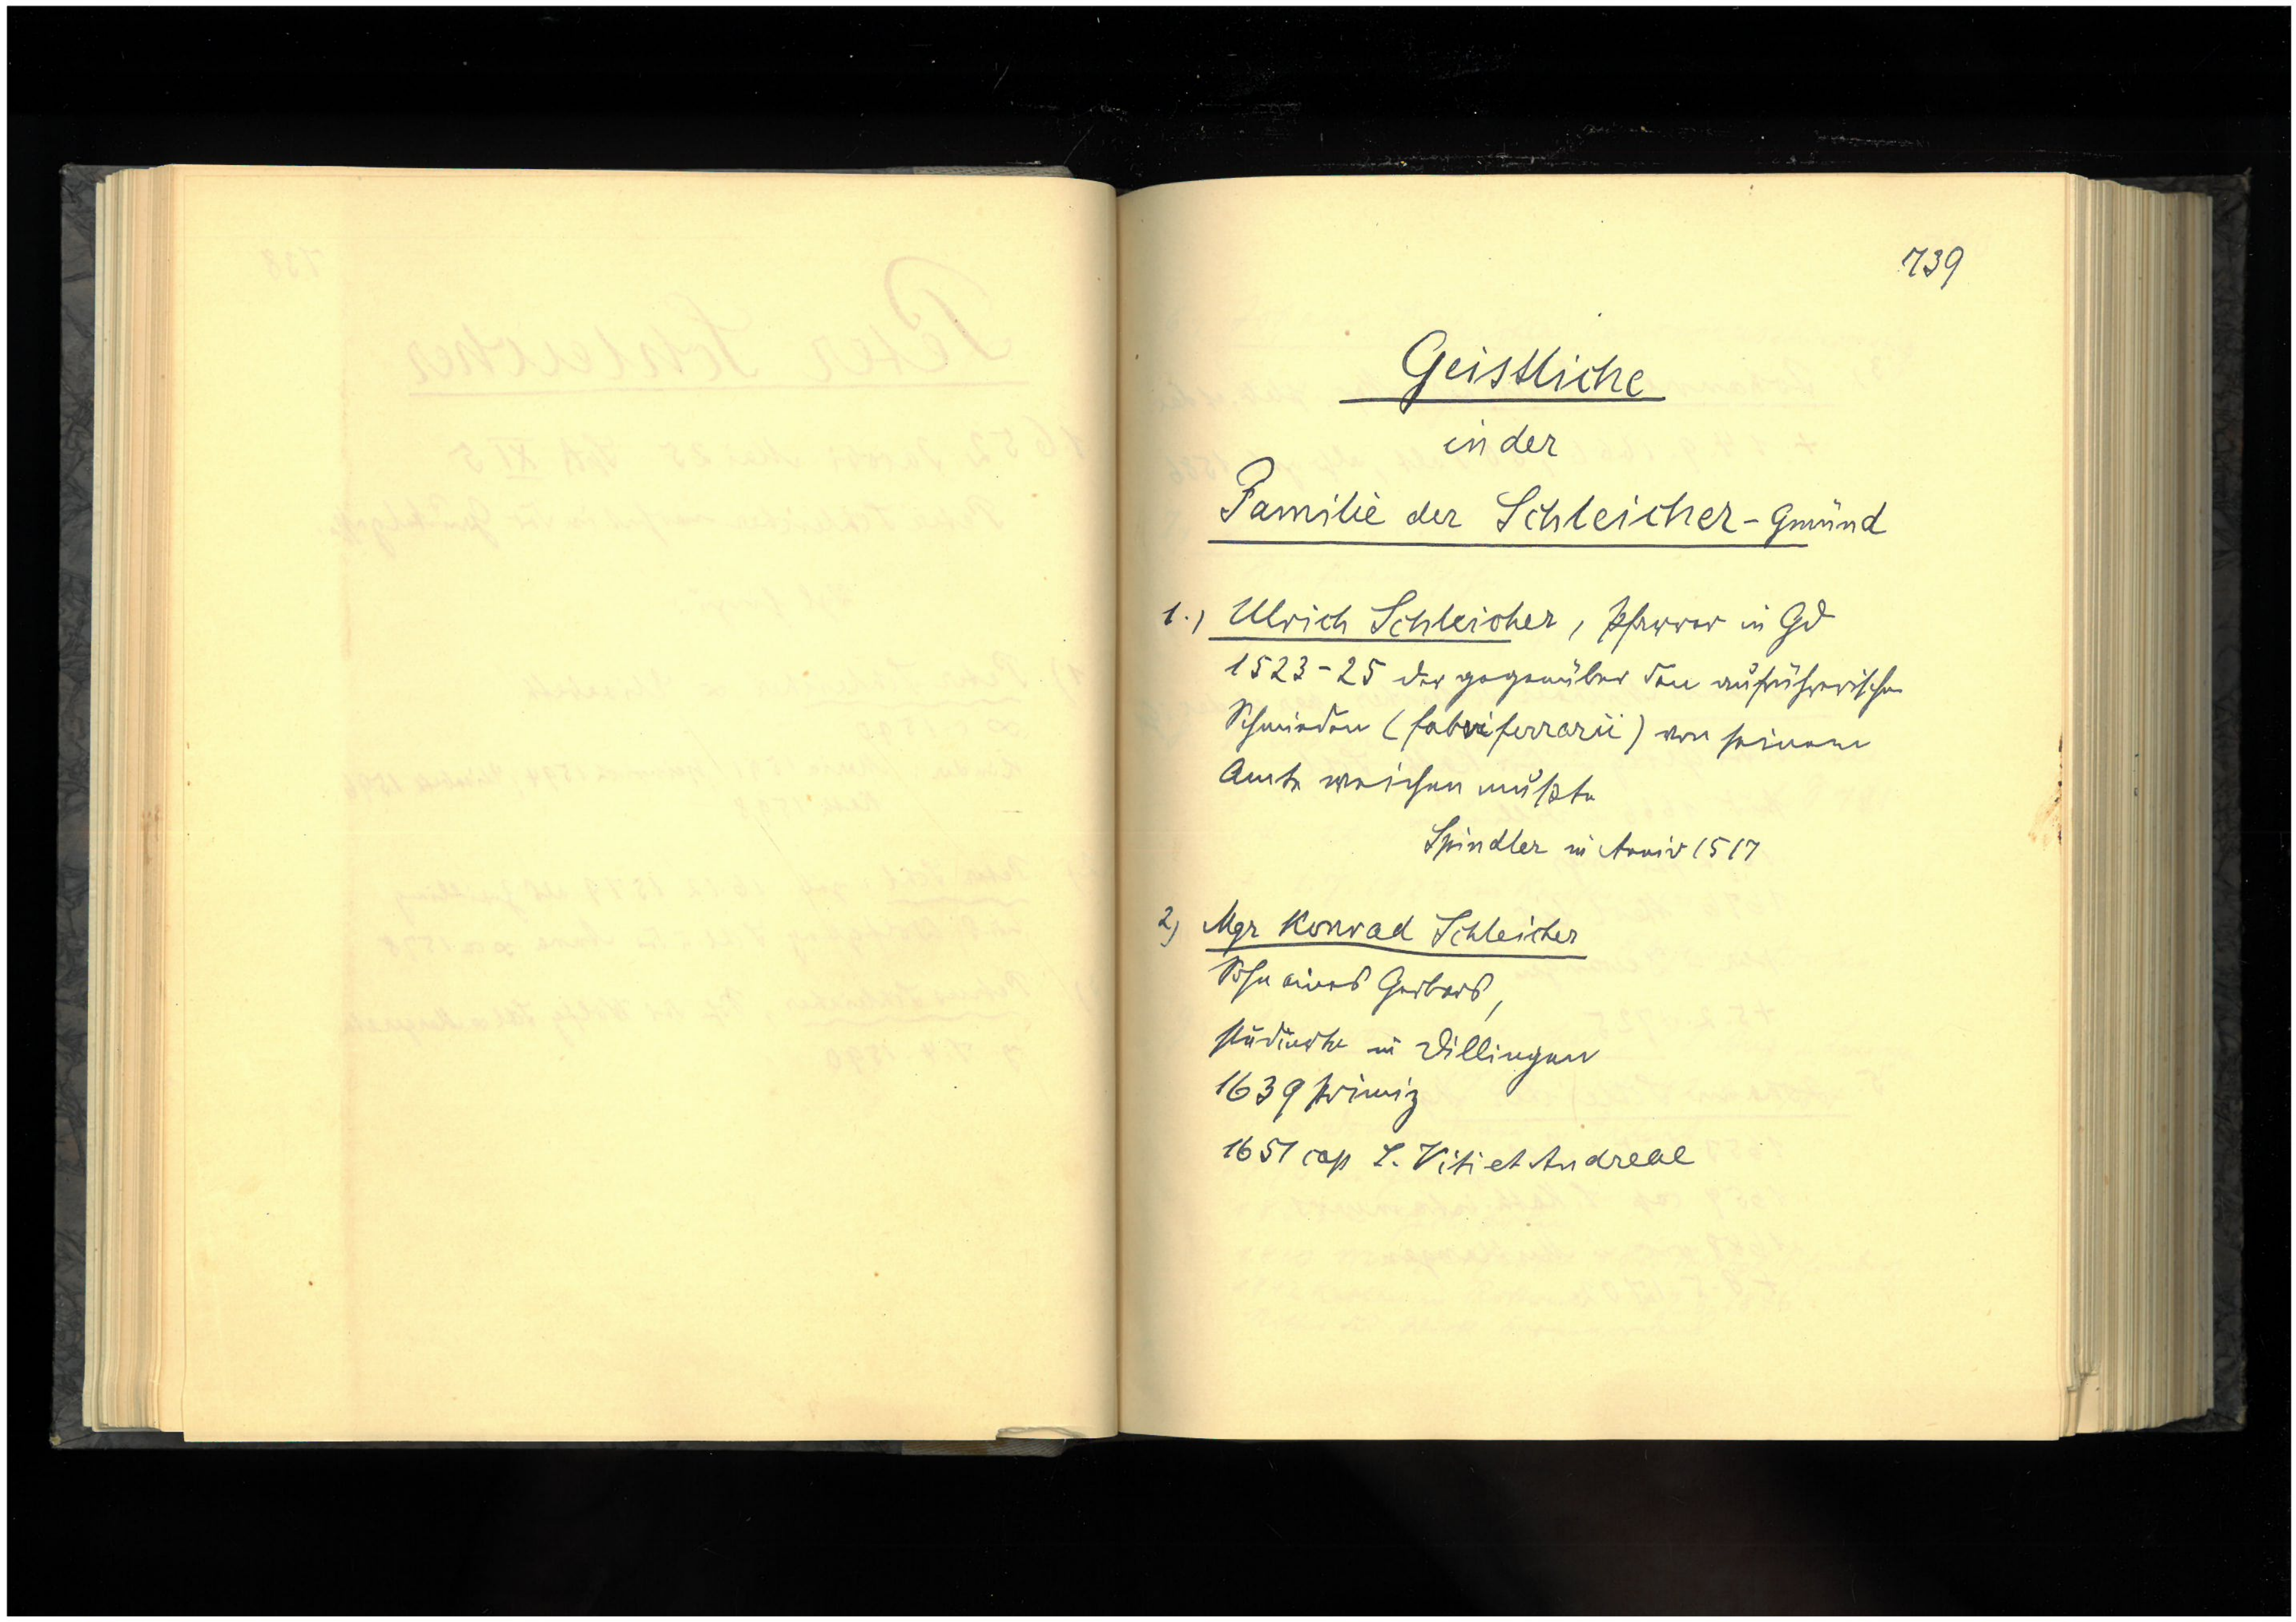 739
Geistliche
in der
Familie der Schleicher - Gmünd
1.) Ulrich Schleicher, Pfarrer in Gd
1523-25 der gegenüber den aufrührerischen
Schmieden (fabri ferrarii) von seinem
Amte weichen mußte
Spindler in 1517
2) Mgr Konrad Schleicher
Sohn eines Gerbers,
studierte in Dillingen
1639 Primiz
1651 cap S. Viti et Andreae